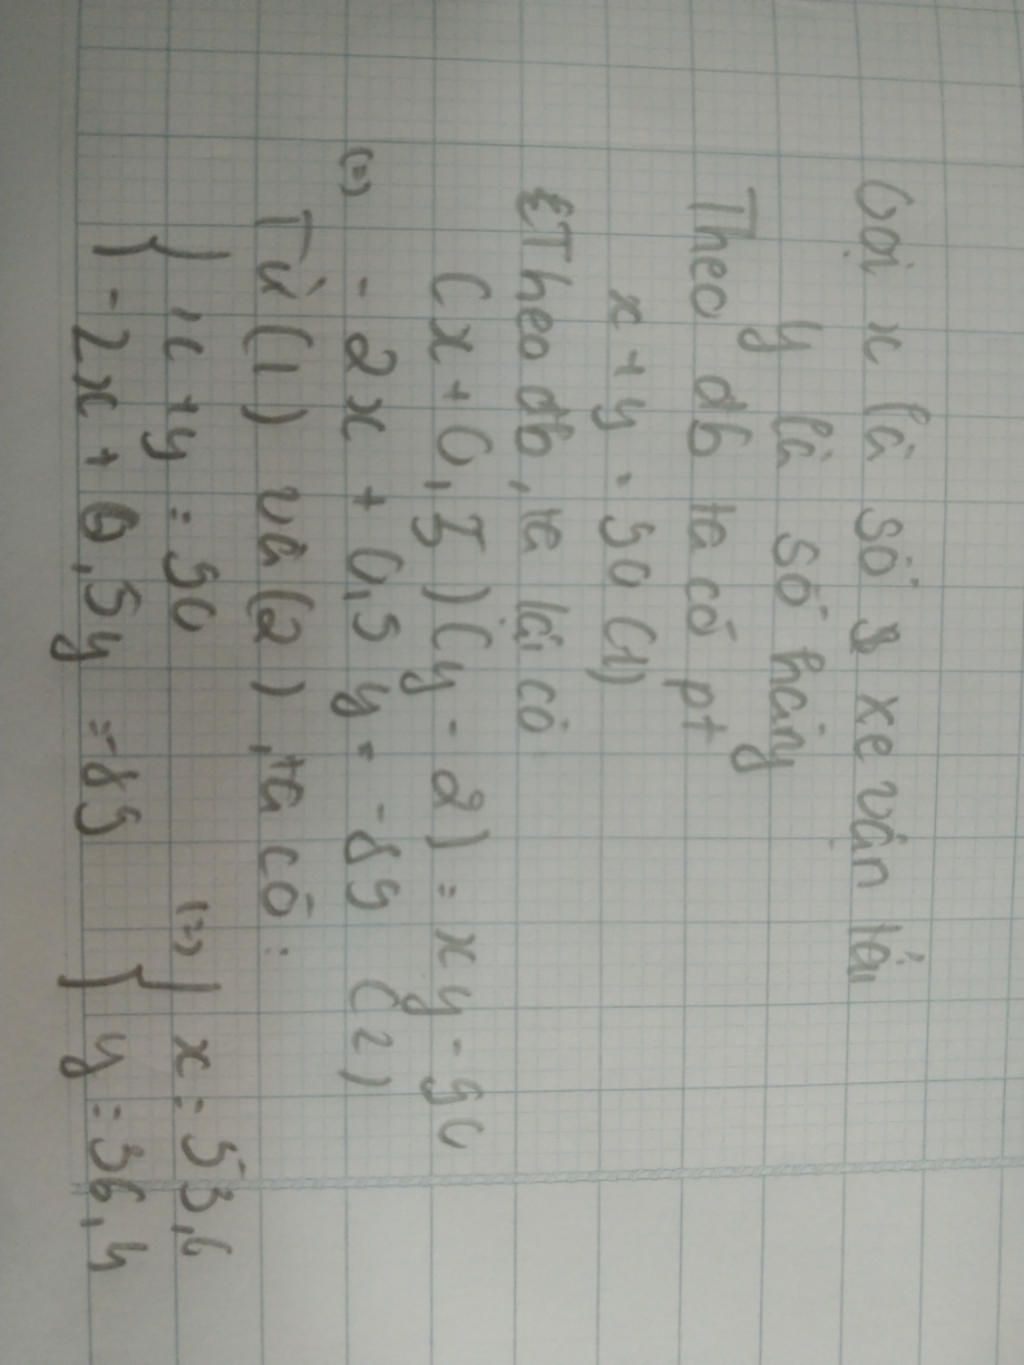 Gọi x là số xe vận tải
y là số hàng
Theo đb ta có pt
x + y = 90 (1)
Theo đb, ta lại có
(x + 0,5)(y - 2) = xy - 90
(=) - 2x + 0,5y = -89 (2)
Từ (1) và (2), ta có:
{ x + y = 90 (=) { x = 53,6
{ -2x + 0,5y = -89 { y = 36,4